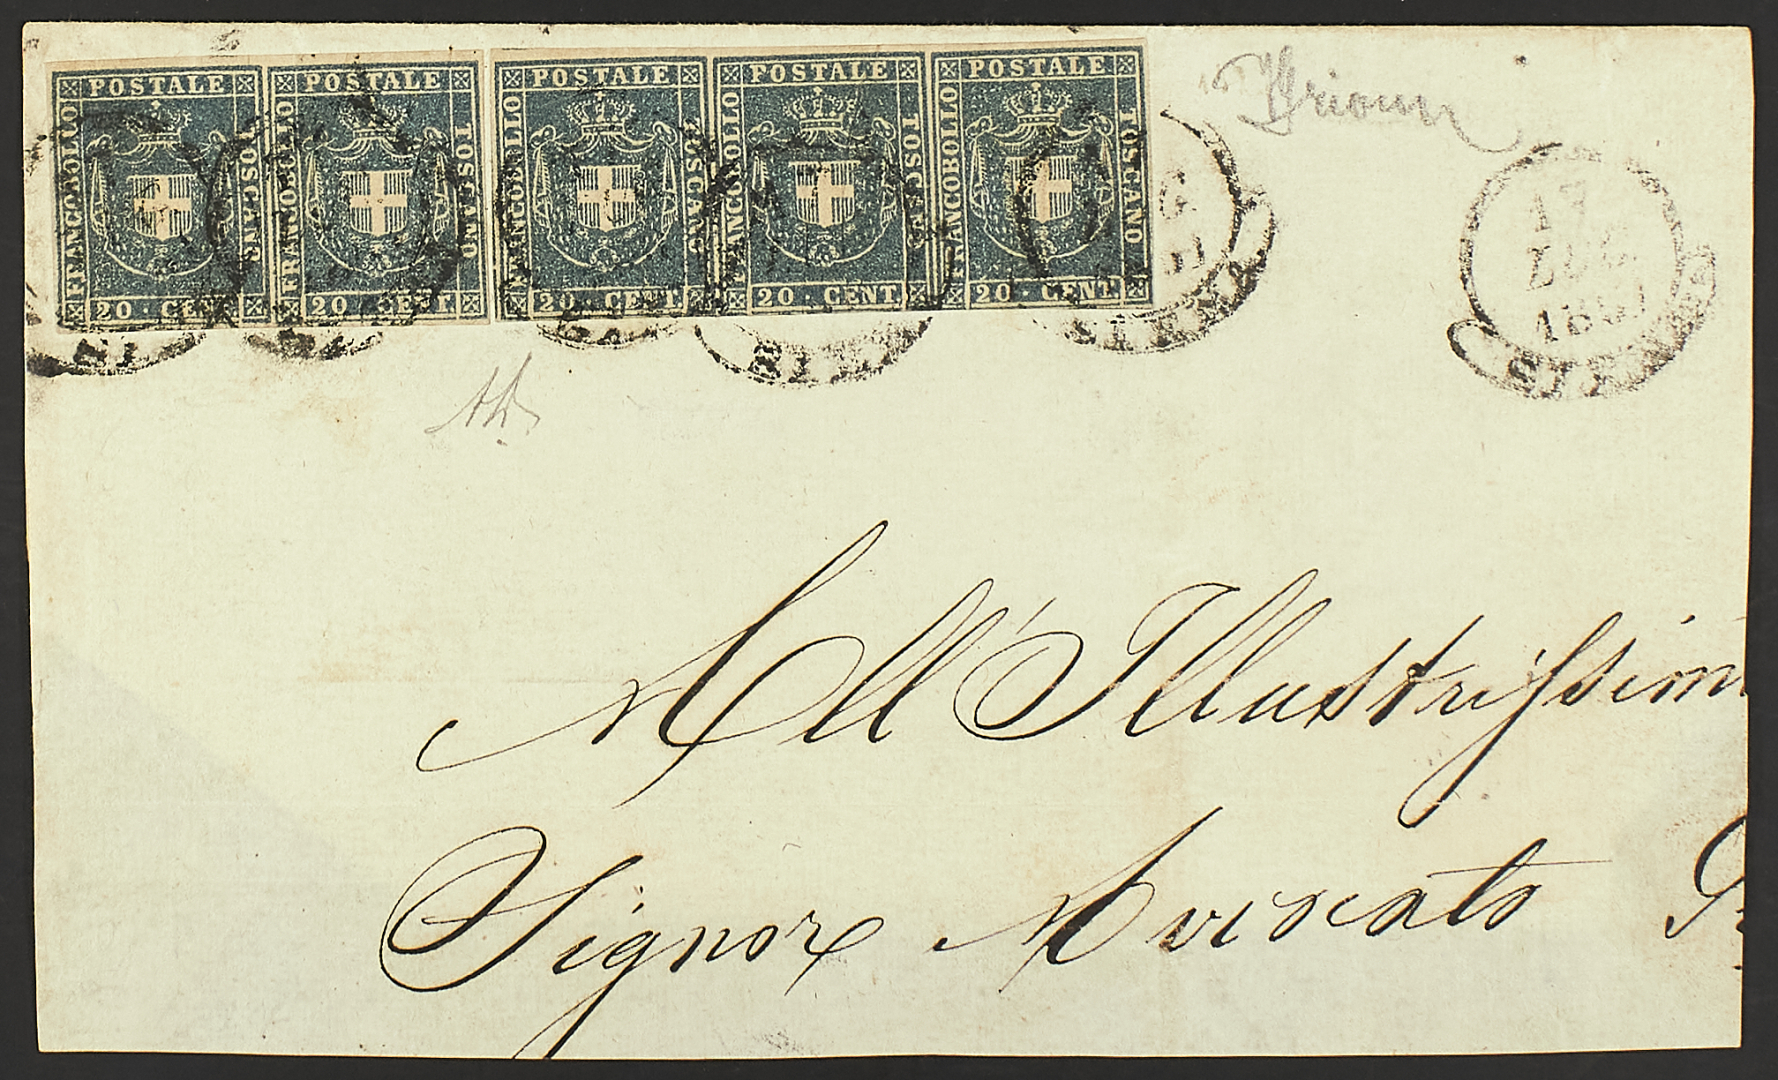 POSTALE
FRANCOBOLLO
TOSCANO
20 · CENT.
POSTALE
FRANCOBOLLO
TOSCANO
20 · CENT.
POSTALE
FRANCOBOLLO
TOSCANO
20 · CENT.
POSTALE
FRANCOBOLLO
TOSCANO
20 · CENT.
POSTALE
FRANCOBOLLO
TOSCANO
20 · CENT.
SIENA
17
LUG
1861
SIENA
All' Illustrissim
Signor Avvocato